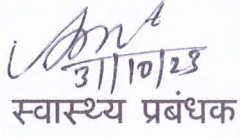 31/10/23
स्वास्थ्य प्रबंधक